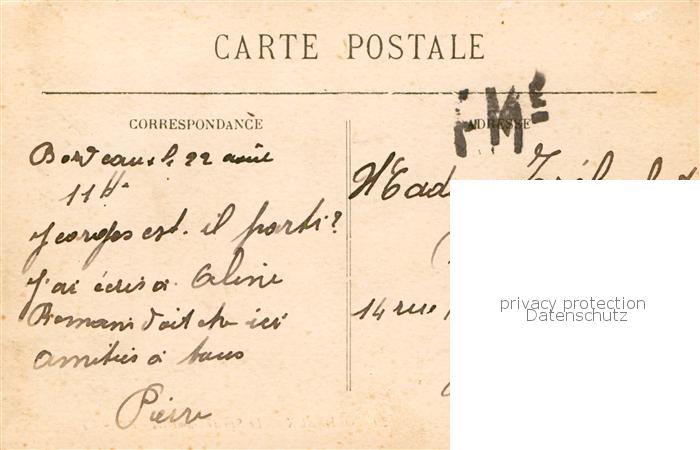 CARTE POSTALE
FM
CORRESPONDANCE
ADRESSE
Bordeaux le 22 août
11 H.
Georges est-il parti?
J'ai écris à Aline
Romans doit être ici
amitiés à tous
Pierre
14 rue
privacy protection
Datenschutz